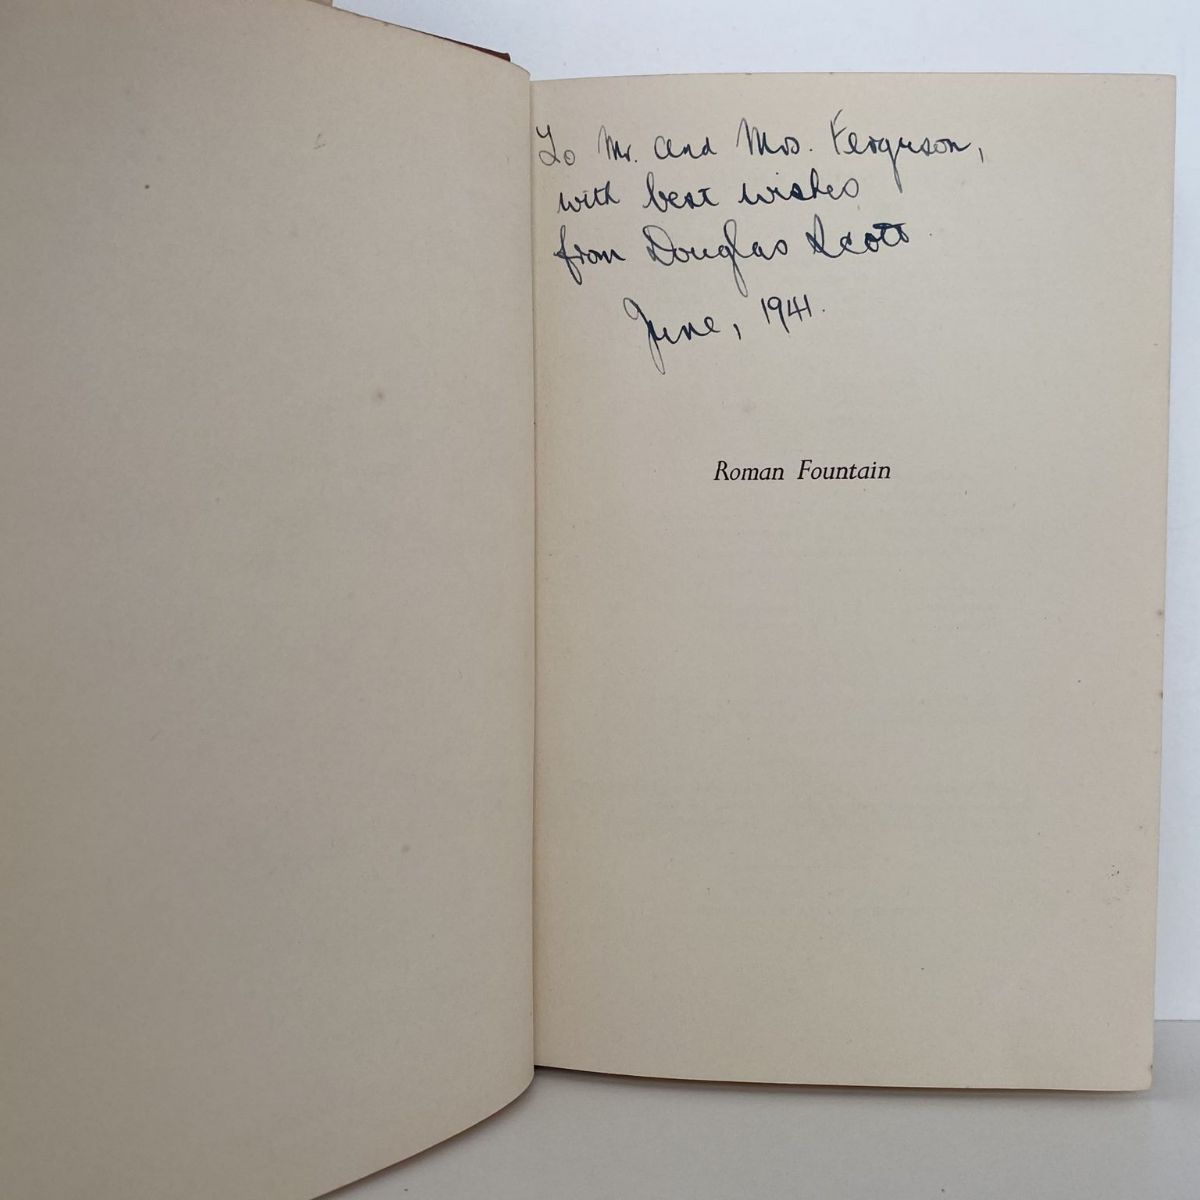 To Mr. and Mrs. Ferguson,
with best wishes
from Douglas Scott.
June, 1941.
Roman Fountain